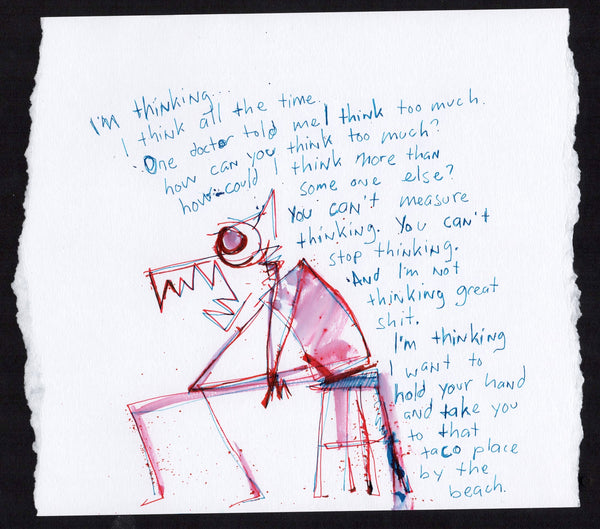 I'm thinking...
I think all the time.
One doctor told me I think too much.
how can you think too much?
how could I think more than
some one else?
You can't measure
thinking. You can't
stop thinking.
And I'm not
thinking great
shit.
I'm thinking
I want to
hold your hand
and take you
to that
taco place
by the
beach.